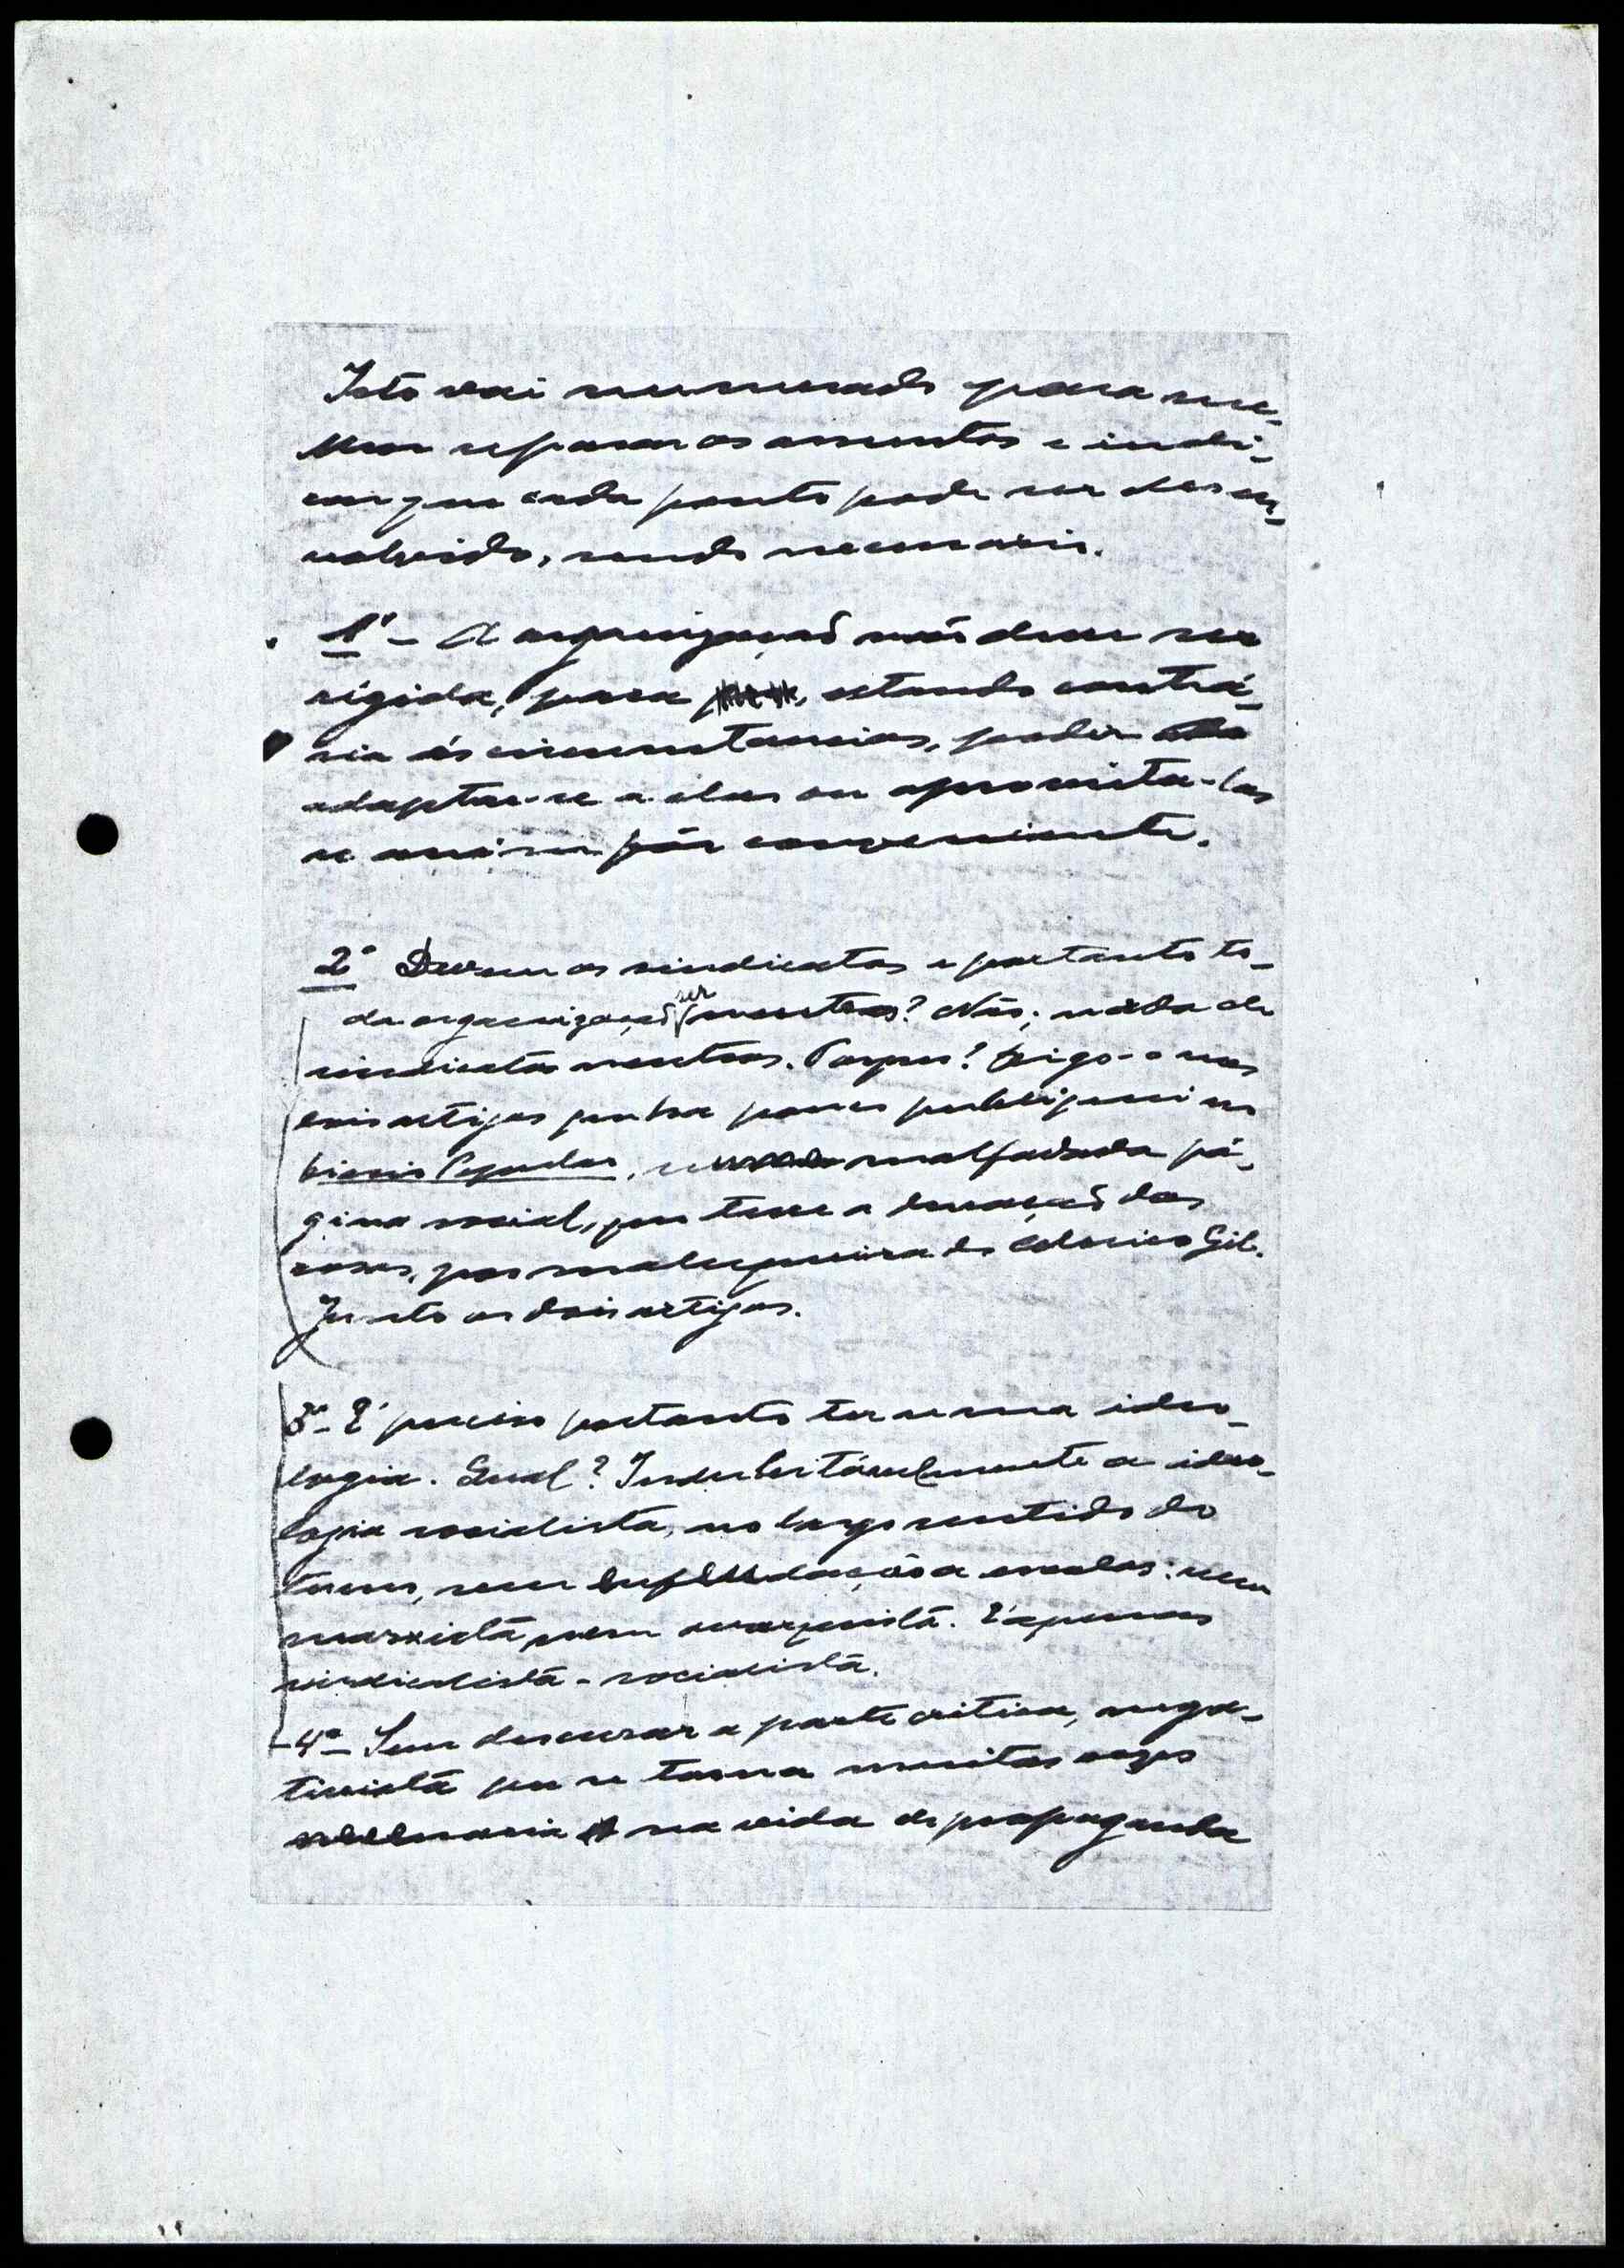 Isto vai numerado para me-
lhor separar os assuntos e indi-
car que cada ponto pode ser desen-
volvido, sendo necessario.
1º - A organização não deve ser
rígida, para estando contrá-
ria ás circunstancias, poder
adaptar-se a elas ou aproveita-las
se assim fôr conveniente.
2º Devem os sindicatos e portanto to-
da organização ser neutros? Não; nada de
sindicatos neutros. Porque? Digo-o nos
dois artigos que ha pouco publiquei no
Diario Popular, malfadada pá-
gina social, que teve a duração das
rosas, por do Gil.
Junto os dois artigos.
3º - E' preciso portanto ter uma ideo-
logia. Qual? Indubitávelmente a ideo-
logia socialista, no largo sentido do
termo, sem enfeudação a escolas: nem
marxista, nem anarquista. E' apenas
sindicalista-socialista.
4º - Sem descurar a parte critica, nega-
tivista que se torna muitas vezes
necessaria na vida de propaganda